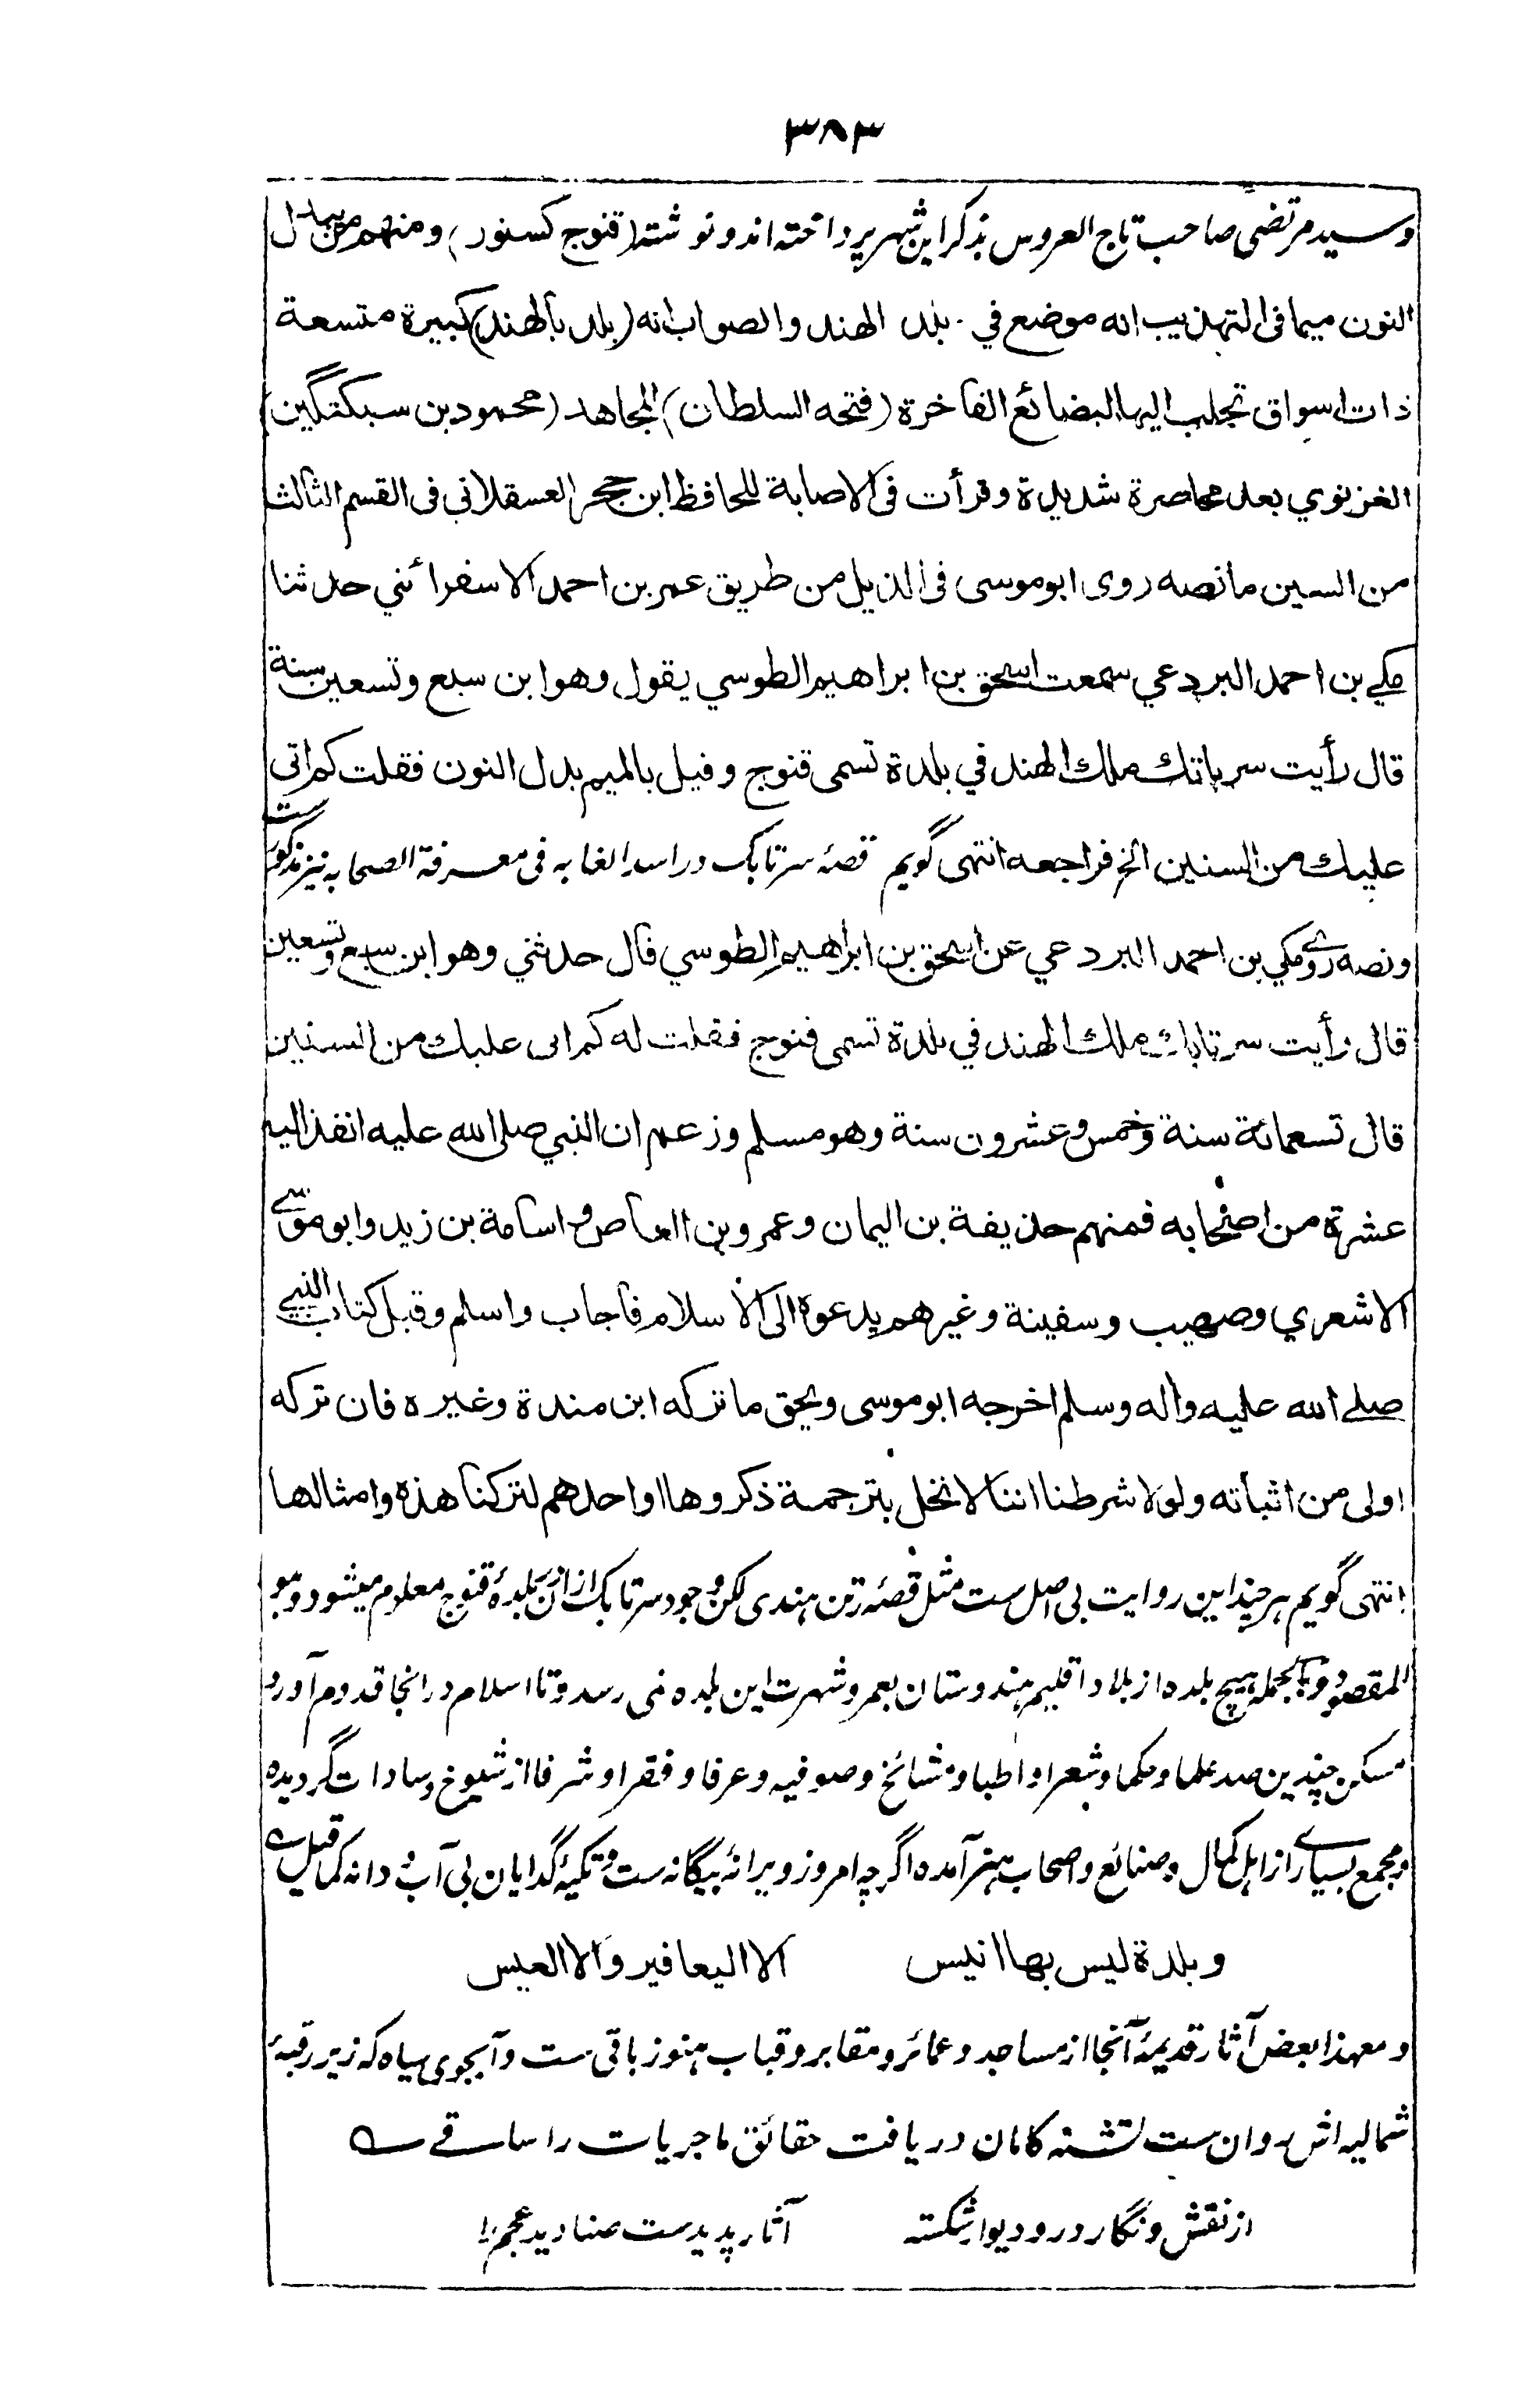 ۳۸۳
وسید مرتضی صاحب تاج العروس بذکر این شهر پرداخته اند و نوشته (قنوج کسنور) ومنهم من یبدل
النون میما فی التهذیب انه موضع فی بلد الهند والصواب انه (بلد بالهند) کبیرة متسعة
ذات اسواق تجلب الیها البضائع الفاخرة (فتحه السلطان) المجاهد (محمود بن سبکتگین)
الغزنوي بعد محاصرة شدیدة وقرأت فی الاصابة للحافظ ابن حجر العسقلانی فی القسم الثالث
من السین مانصه روی ابو موسی فی الذیل من طریق عمر بن احمد الاسفرائني حدثنا
مکي بن احمد البردعي سمعت اسحق بن ابراهیم الطوسي یقول وهو ابن سبع وتسعین سنة
قال رأیت سرباتك ملك الهند في بلدة تسمی قنوج وقیل بالمیم بدل النون فقلت کم اتی
علیك من السنین الخ فراجعه انتهی گویم قصۀ سرتابک در اسد الغابه فی معرفة الصحابه نیز مذکورست
ونصه روی مکي بن احمد البردعي عن اسحق بن ابراهیم الطوسي قال حدثني وهو ابن سبع وتسعین
قال رأیت سرتابك ملك الهند في بلدة تسمی قنوج فقلت له کم اتی علیك من السنین
قال تسعمائة سنة وخمس وعشرون سنة وهو مسلم وزعم ان النبي صلی الله علیه انفذ الیه
عشرة من اصحابه فمنهم حذیفة بن الیمان وعمرو بن العاص و اسامة بن زید وابو موسی
الاشعري وصهیب وسفینة وغیرهم یدعوه الی الاسلام فاجاب واسلم وقبل کتاب النبي
صلی الله علیه وأله وسلم اخرجه ابو موسی وبحق ما ترکه ابن مندة وغیره فان ترکه
اولی من اثباته ولولا شرطنا اننا لا نخل بترجمة ذکروها او احدهم لترکنا هذه وامثالها
انتهی گویم هر چند این روایت بی اصل ست مثل قصۀ رتن هندی لکن وجود سرتابک ازان در بلدۀ قنوج معلوم میشود وهو
المقصود و بالجمله هیچ بلده از بلاد اقلیم هندوستان بعمر و شهرت این بلده نمی رسد و تا اسلام در انجا قدوم آورد
مسکن چندین صد علما و حکما و شعرا و اطبا و مشائخ و صوفیه و عرفا و فقرا و شرفا از شیوخ و سادات گردیده
و مجمع بسیاری از اهل کمال و صنائع و اصحاب هنر آمده اگر چه امروز ویرانۀ بیگانه ست و تکیۀ گدایان بی آب و دانه کما قیل
وبلدة لیس بها انیس الا الیعافیر والا العیس
و معهذا بعض آثار قدیمۀ آنجا از مساجد و عمائر و مقابر و قباب هنوز باقی ست و آبجوی سیاه که زیر رقبۀ
شمالیه اش روان ست لتشنه کامان دریافت حقائق ماجریات را ساقی
از نقش و نگار در و دیوار شکسته آثار پدیدست صنادید عجم را